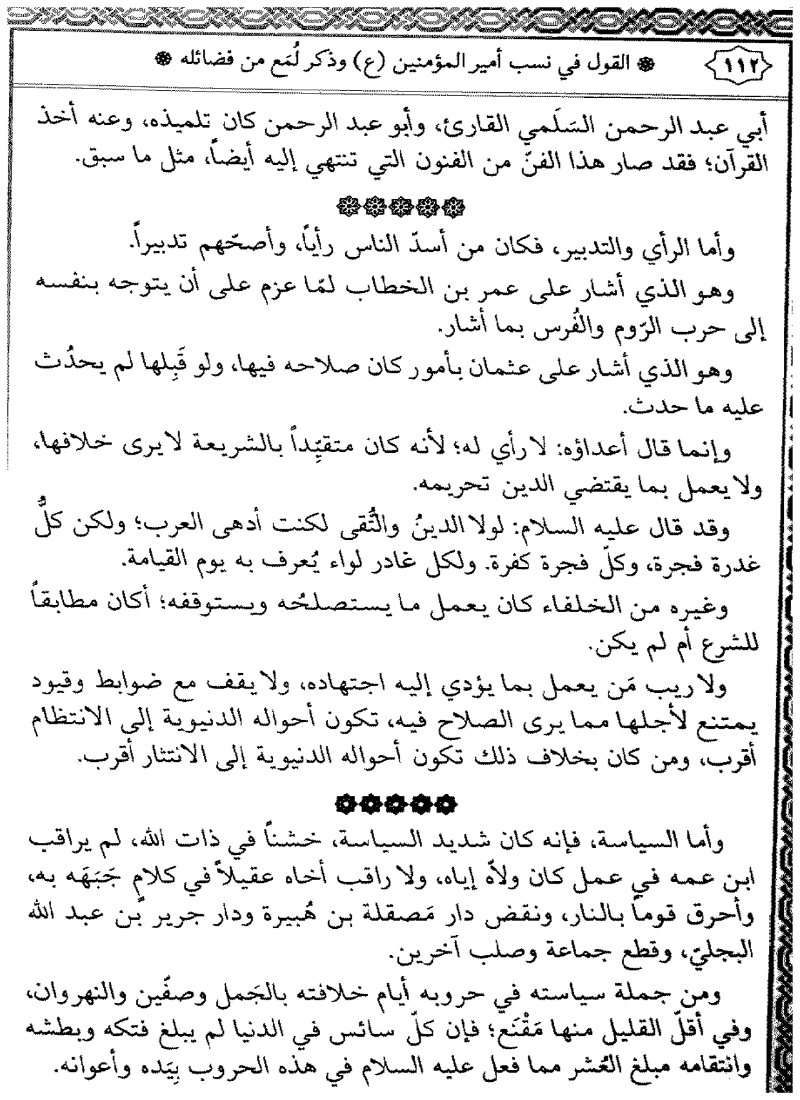 ١١٢
❋ القول في نسب أمير المؤمنين (ع) وذكر لُمَع من فضائله ❋
أبي عبد الرحمن السَلَمي القارئ، وأبو عبد الرحمن كان تلميذه، وعنه أخذ
القرآن؛ فقد صار هذا الفنّ من الفنون التي تنتهي إليه أيضاً، مثل ما سبق.
وأما الرأي والتدبير، فكان من أسدّ الناس رأياً، وأصحّهم تدبيراً.
وهو الذي أشار على عمر بن الخطاب لمّا عزم على أن يتوجه بنفسه
إلى حرب الرّوم والفُرس بما أشار.
وهو الذي أشار على عثمان بأمور كان صلاحه فيها، ولو قَبِلها لم يحدُث
عليه ما حدث.
وإنما قال أعداؤه: لا رأي له؛ لأنه كان متقيِّداً بالشريعة لا يرى خلافها،
ولا يعمل بما يقتضي الدين تحريمه.
وقد قال عليه السلام: لولا الدينُ والتُّقى لكنت أدهى العرب؛ ولكن كلُّ
غدرة فجرة، وكلّ فجرة كفرة. ولكل غادر لواء يُعرف به يوم القيامة.
وغيره من الخلفاء كان يعمل ما يستصلحُه ويستوقفه؛ أكان مطابقاً
للشرع أم لم يكن.
ولا ريب مَن يعمل بما يؤدي إليه اجتهاده، ولا يقف مع ضوابط وقيود
يمتنع لأجلها مما يرى الصلاح فيه، تكون أحواله الدنيوية إلى الانتظام
أقرب، ومن كان بخلاف ذلك تكون أحواله الدنيوية إلى الانتثار أقرب.
وأما السياسة، فإنه كان شديد السياسة، خشناً في ذات الله، لم يراقب
ابن عمه في عمل كان ولاّه إياه، ولا راقب أخاه عقيلاً في كلامٍ جَبَهَه به،
وأحرق قوماً بالنار، ونقض دار مَصقلة بن هُبيرة ودار جرير بن عبد الله
البجليّ، وقطع جماعة وصلب آخرين.
ومن جملة سياسته في حروبه أيام خلافته بالجَمل وصفّين والنهروان،
وفي أقلّ القليل منها مَقْنَع؛ فإن كلّ سائس في الدنيا لم يبلغ فتكه وبطشه
وانتقامه مبلغ العُشر مما فعل عليه السلام في هذه الحروب بِيَده وأعوانه.